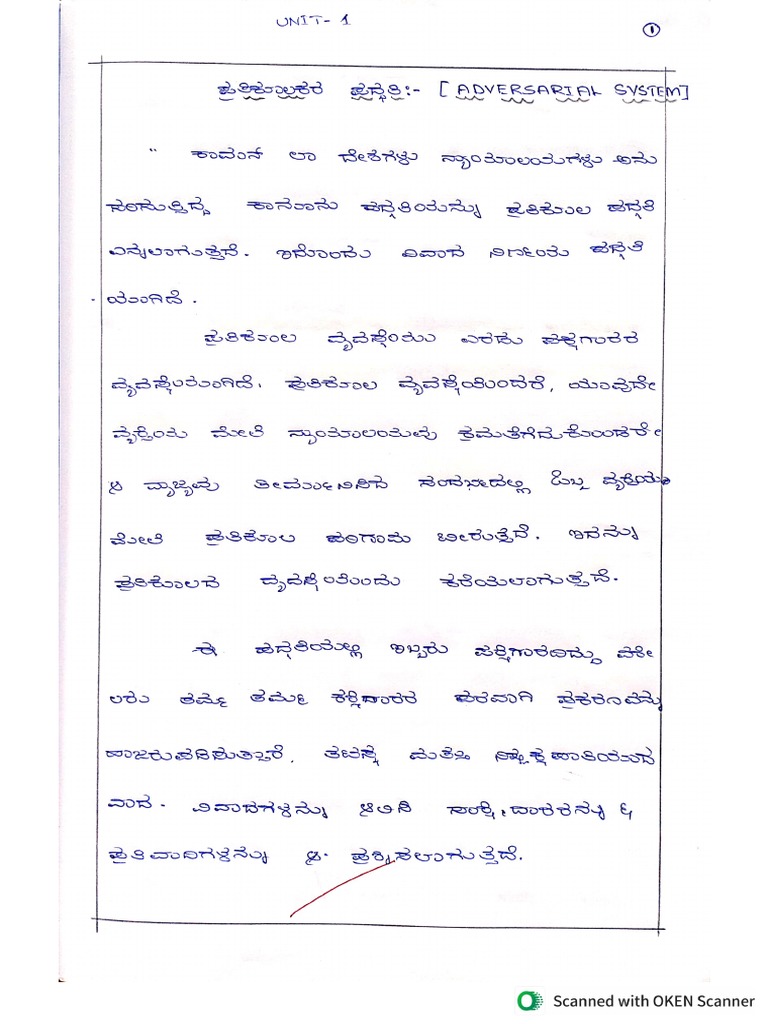 UNIT- 1
1
ಪ್ರತಿಕೂಲಕರ ಪದ್ಧತಿ:- [ADVERSARIAL SYSTEM]
" ಕಾಮನ್ ಲಾ ದೇಶಗಳು ನ್ಯಾಯಾಲಯಗಳು ಅನು
ಸರಿಸುತ್ತಿದ್ದ ಕಾನೂನು ಪದ್ಧತಿಯನ್ನು ಪ್ರತಿಕೂಲ ಪದ್ಧತಿ
ಎನ್ನಲಾಗುತ್ತದೆ. ಇದೊಂದು ವಿವಾದ ನಿರ್ಣಯ ಪದ್ಧತಿ
ಯಾಗಿದೆ.
ಪ್ರತಿಕೂಲ ವ್ಯವಸ್ಥೆಯು ಎರಡು ಪಕ್ಷಗಾರರ
ವ್ಯವಸ್ಥೆಯಾಗಿದೆ. ಪ್ರತಿಕೂಲ ವ್ಯವಸ್ಥೆಯೆಂದರೆ, ಯಾವುದೇ
ವ್ಯಕ್ತಿಯ ಮೇಲೆ ನ್ಯಾಯಾಲಯವು ಕ್ರಮತೆಗೆದುಕೊಂಡರೇ
& ವ್ಯಾಜ್ಯವು ತೀರ್ಮಾನಿಸಿದ ಸಂದರ್ಭದಲ್ಲಿ ಒಬ್ಬ ವ್ಯಕ್ತಿಯ
ಮೇಲೆ ಪ್ರತಿಕೂಲ ಪರಿಣಾಮ ಬೀರುತ್ತದೆ. ಇದನ್ನು
ಪ್ರತಿಕೂಲದ ವ್ಯವಸ್ಥೆಯೆಂದು ಕರೆಯಲಾಗುತ್ತದೆ.
ಈ ಪದ್ಧತಿಯಲ್ಲಿ ಇಬ್ಬರು ಪಕ್ಷಿಗಾರರಿದ್ದು ವಕೀ
ಲರು ತಮ್ಮ ತಮ್ಮ ಕಕ್ಷಿದಾರರ ಪರವಾಗಿ ಪ್ರಕರಣವನ್ನು
ಹಾಜರುಪಡಿಸುತ್ತಾರೆ, ತಟಸ್ಥ ಮತ್ತು ನಿಷ್ಪಕ್ಷಪಾತಿಯಾದ
ವಾದ. ವಿವಾದಗಳನ್ನು ಆಲಿಸಿ &
ಪ್ರತಿವಾದಿಗಳನ್ನು &. ಪ್ರಶ್ನಿಸಲಾಗುತ್ತದೆ.
Scanned with OKEN Scanner